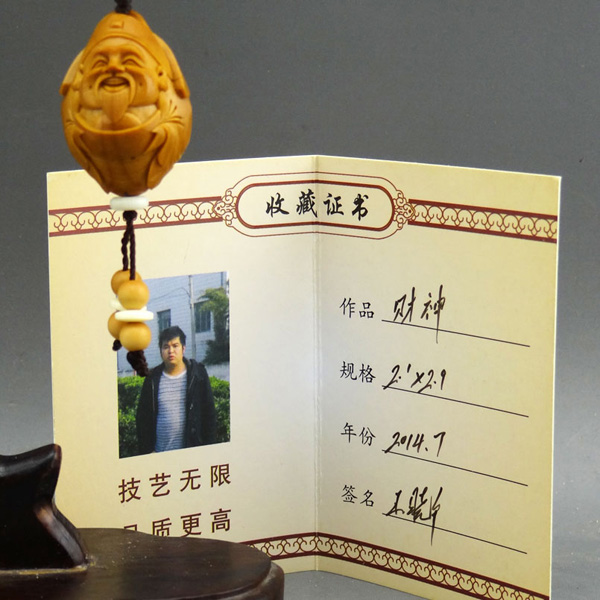 收藏证书
技艺无限
品质更高
作品 财神
规格 2.1×2.9
年份 2014.7
签名